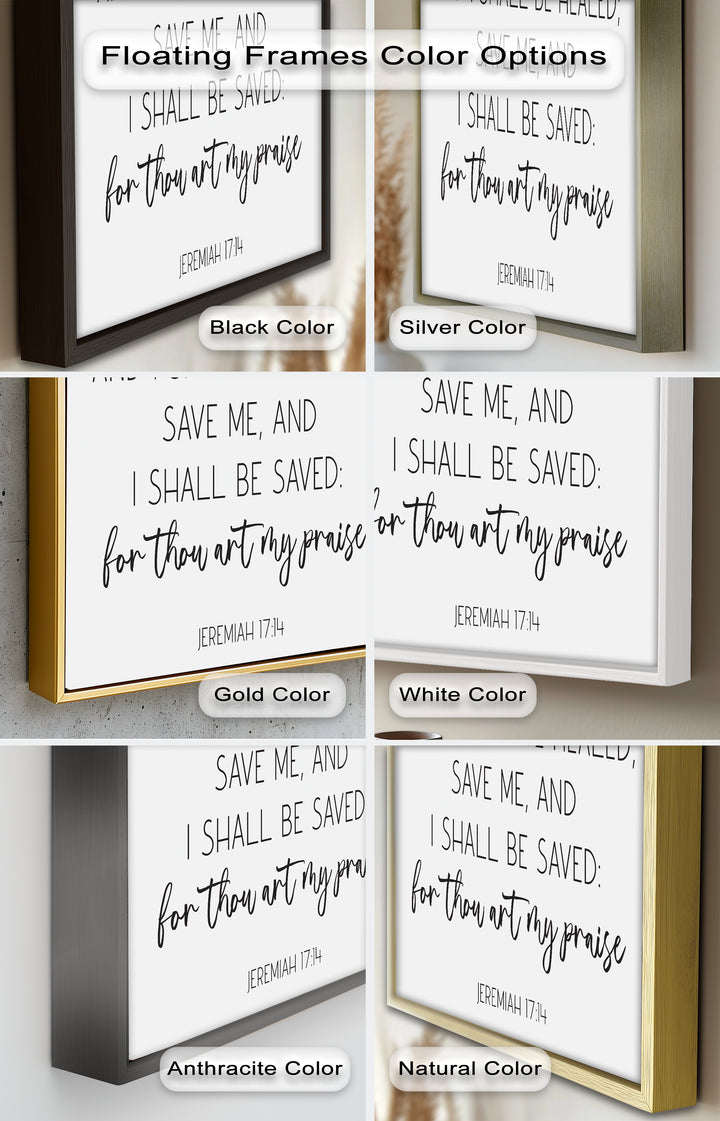 Floating Frames Color Options
SAVE ME, AND
I SHALL BE SAVED:
for thou art my praise
JEREMIAH 17:14
Black Color
I SHALL BE HEALED;
SAVE ME, AND
I SHALL BE SAVED:
for thou art my praise
JEREMIAH 17:14
Silver Color
SAVE ME, AND
I SHALL BE SAVED:
for thou art my praise
JEREMIAH 17:14
Gold Color
SAVE ME, AND
I SHALL BE SAVED:
for thou art my praise
JEREMIAH 17:14
White Color
SAVE ME, AND
I SHALL BE SAVED
for thou art my pra
JEREMIAH 17:14
Anthracite Color
HEALED;
SAVE ME, AND
I SHALL BE SAVED:
for thou art my praise
JEREMIAH 17:14
Natural Color